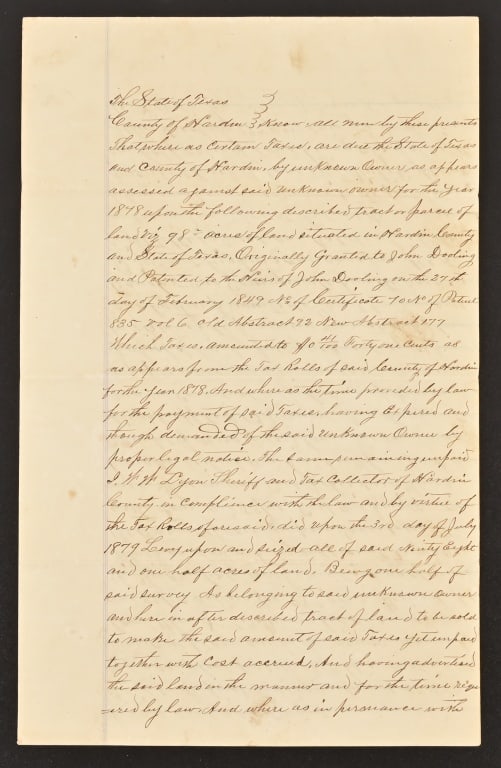 The State of Texas
County of Hardin Know all men by these presents
That where as Certain Taxes, are due the State of Texas
and County of Hardin, by unKnown Owner as appears
assessed against said unKnown owner for the year
1878 upon the following described tract or parcel of
land Viz 98 acres of land situated in Hardin County
and State of Texas, Originally Granted to John Dooling
and Patented to the Heirs of John Dooling on the 27th
day of February 1849 No of Certificate 70 No of Patent
835 Vol 6 Old Abstract 92 New Abstract 177
Which Taxes, amounted to $0 41/100 Forty one Cents as
as appears from the Tax Rolls of said County of Hardin
for the year 1878. And where as the time provided by law
for the payment of said Taxes, having Expired and
though demanded of the said unKnown Owner by
proper legal notice. The same remaining unpaid
I, W W Dyon Sheriff and Tax Collector of Hardin
County in Complience with the law and by virtue of
the Tax Rolls, aforesaid, did upon the 3rd day of July
1879 Levy upon and seized all of said Ninty Eight
and one half acres of land. Being one half of
said survey As belonging to said unKnown owner
and here in after described tract of land to be sold
to make the said amount of said Taxes yet unpaid
together with Cost accrued, And having advertised
the said land in the manner and for the time requ
=ired by law. And where as in persuance with